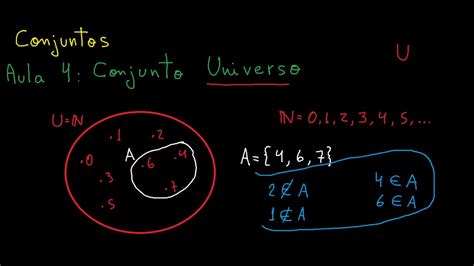 Conjuntos
U
Aula 4: Conjunto Universo
U=ℕ
.1 .2
ℕ = 0, 1, 2, 3, 4, 5, ...
.0 A .6 .4
A={4, 6, 7}
.3 .7
2 ∉ A 4 ∈ A
.5
1 ∉ A 6 ∈ A